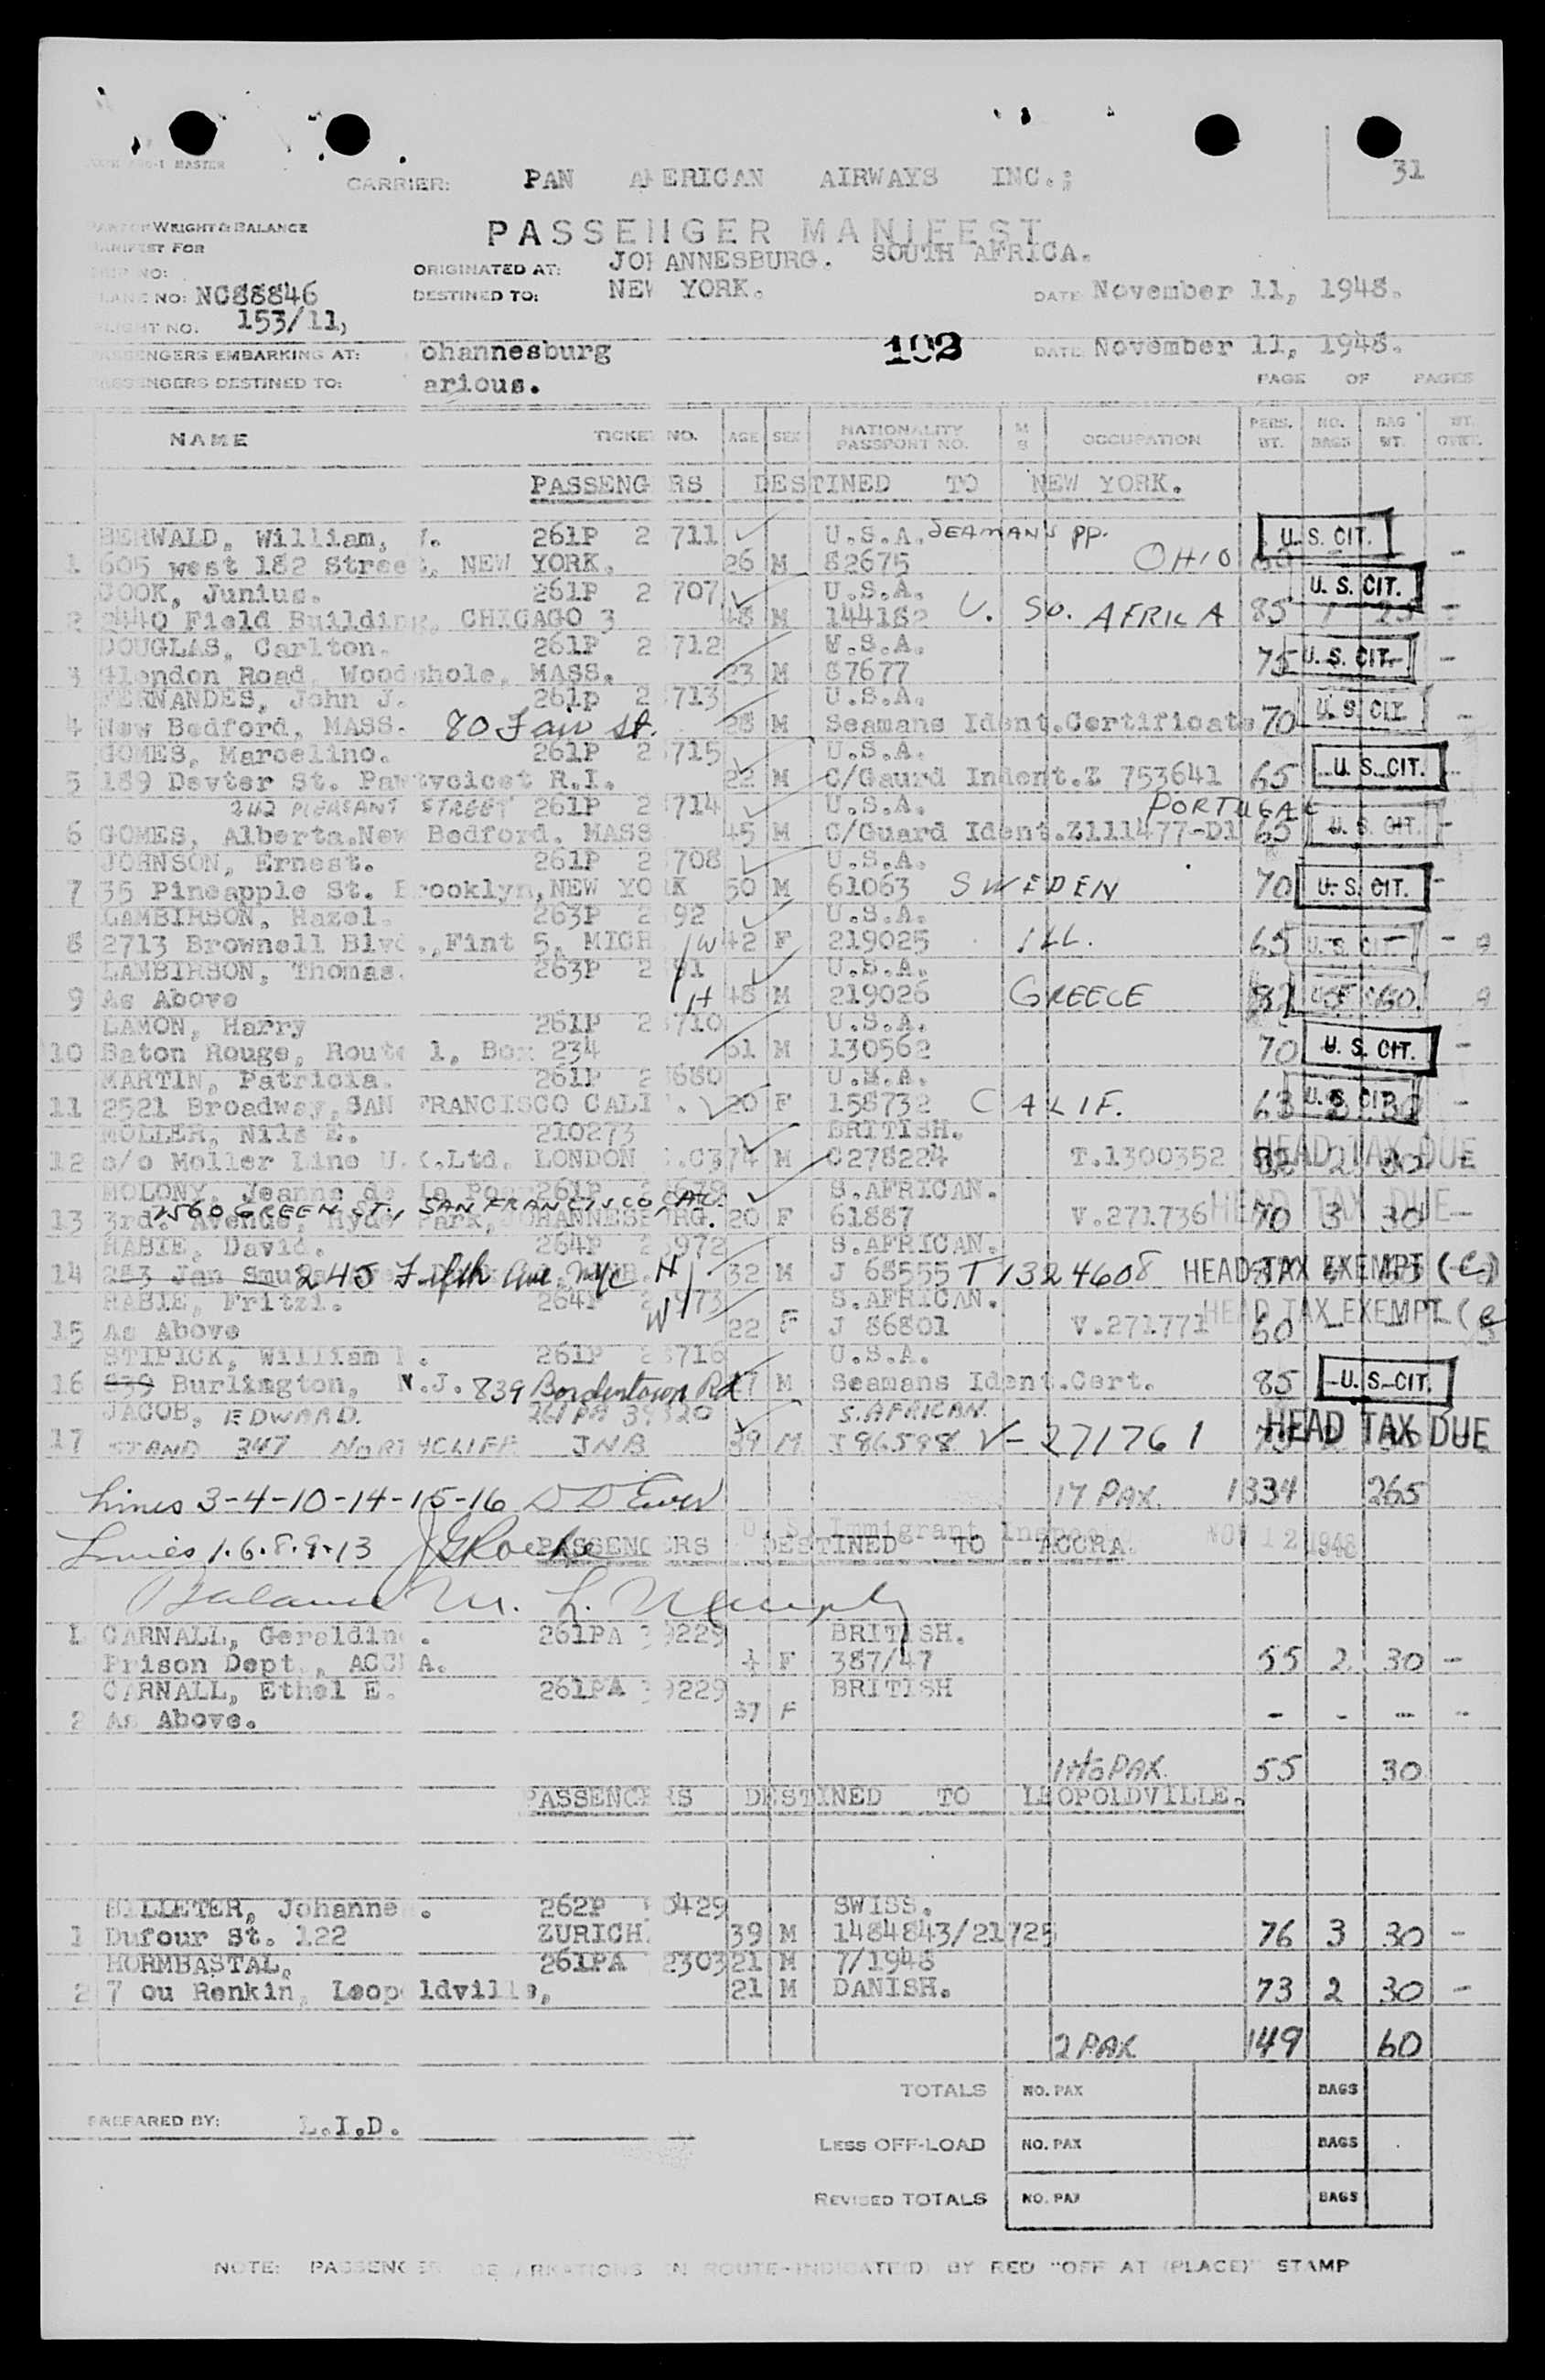 MASTER
CARRIER: PAN AMERICAN AIRWAYS INC.;
31
WEIGHT & BALANCE
MANIFEST FOR
PASSENGER MANIFEST
NO:
ORIGINATED AT: JOHANNESBURG. SOUTH AFRICA.
PLANE NO: NC88846
DESTINED TO: NEW YORK.
DATE November 11, 1948.
FLIGHT NO. 153/11,
PASSENGERS EMBARKING AT: ohannesburg
102
DATE November 11, 1948.
PASSENGERS DESTINED TO: arious.
PAGE OF PAGES
NAME TICKET NO. AGE SEX NATIONALITY PASSPORT NO. M S OCCUPATION PERS. WT. NO. BAGS BAG WT. WT. OVER.
PASSENGERS DESTINED TO NEW YORK.
BERWALD, William, 261P 2 711 U.S.A. SEAMAN'S PP. U. S. CIT.
1 605 west 182 Street, NEW YORK. 26 M 82675 OHIO -
COOK, Junius. 261P 2 707 U.S.A. U. S. CIT.
2 2440 Field Building, CHICAGO 3 48 M 144182 U. SO. AFRICA 85 1 25 -
DOUGLAS, Carlton. 261P 2 712 U.S.A.
3 Glendon Road, Woodshole, MASS. 23 M 87677 75 U. S. CIT. -
FERNANDES, John J. 261p 2 713 U.S.A.
4 New Bedford, MASS. 80 Fair St. 28 M Seamans Ident.Certificate 70 U. S. CIT. -
GOMES, Marcelino. 261P 2 715 U.S.A.
5 189 Devter St. Pawtvcicet R.I. 22 M C/Gaurd Indent.Z 753641 65 U. S. CIT.
242 PLEASANT STREET 261P 2 714 U.S.A. PORTUGAL
6 GOMES, Alberta.New Bedford. MASS 45 M C/Guard Ident.Z111477-D1 65 U. S. CIT. -
JOHNSON, Ernest. 261P 2 708 U.S.A.
7 35 Pineapple St. Brooklyn,NEW YORK 50 M 61063 SWEDEN 70 U. S. CIT. -
LAMBIRSON, Hazel. 263P 2 92 U.S.A.
8 2713 Brownell Blvd.,Fint 5, MICH W 42 F 219025 ILL. 65 U. S. CIT -
LAMBIRSON, Thomas. 263P 2 91 U.S.A.
9 As Above H 48 M 219026 GREECE 82 60
LAMON, Harry 261P 2 710 U.S.A.
10 Baton Rouge, Route 1, Box 234 51 M 130562 70 U. S. CIT. -
MARTIN, Patricia. 261P 2 680 U.S.A.
11 2521 Broadway,SAN FRANCISCO CALI . 20 F 158732 CALIF. 63 U. S. CIT. 30 -
MOLLER, Nils E. 210273 BRITISH.
12 c/o Moller Line U.K.Ltd. LONDON .C3 74 M C278224 T.1300352 HEAD TAX DUE
MOLONY, Jeanne de la 261P S.AFRICAN.
1560 GREEN ST., SAN FRANCISCO, CAL.
13 3rd. Avenue, Hyde Park, JOHANNESBURG. 20 F 61887 V.271736 HEAD TAX DUE 70 3 30 -
RABIE, David. 264P 2 972 S.AFRICAN.
14 Jan Smu 245 Fifth Ave. NYC H 32 M J 68555 T1324608 HEAD TAX EXEMPT (C)
RABIE, Fritzi. 264P 2 973 S.AFRICAN.
15 As Above W 22 F J 86801 V.271771 HEAD TAX EXEMPT (e 60
STIPICK, William . 261P 2 716 U.S.A.
16 839 Burlington, N.J. 839 Bordentown Rd 27 M Seamans Ident.Cert. 85 U. S. CIT.
JACOB, EDWARD. 261PA 39320 S.AFRICAN.
17 STAND 347 NORTHCLIFF JNB 39 M J86598 V-271761 HEAD TAX DUE
17 PAX. 1334 265
Lines 3-4-10-14-15-16
U. S. Immigrant Inspector NOV 12 1948
Lines 1.6.8.9.13
PASSENGERS DESTINED TO ACCRA.
Balance M. L.
1 CARNALL, Geraldine. 261PA 39229 BRITISH.
Prison Dept., ACCRA. F 387/47 55 2 30 -
CARNALL, Ethel E. 261PA 39229 BRITISH
2 As Above. 37 F - - - -
PAX. 55 30
PASSENGERS DESTINED TO LEOPOLDVILLE.
LLIETER, Johanne . 262P 0429 SWISS.
1 Dufour St. 122 ZURICH. 39 M 1484843/21725 76 3 30 -
HORMBASTAL, 261PA 2303 21 M 7/1948
2 7 ou Renkin, Leopoldville, 21 M DANISH. 73 2 30 -
2 PAX 149 60
TOTALS NO. PAX BAGS
PREPARED BY: L.I.D.
LESS OFF-LOAD NO. PAX BAGS
REVISED TOTALS NO. PAX BAGS
NOTE: PASSENGER DEBARKATIONS EN ROUTE-INDICATED BY RED "OFF AT (PLACE)" STAMP